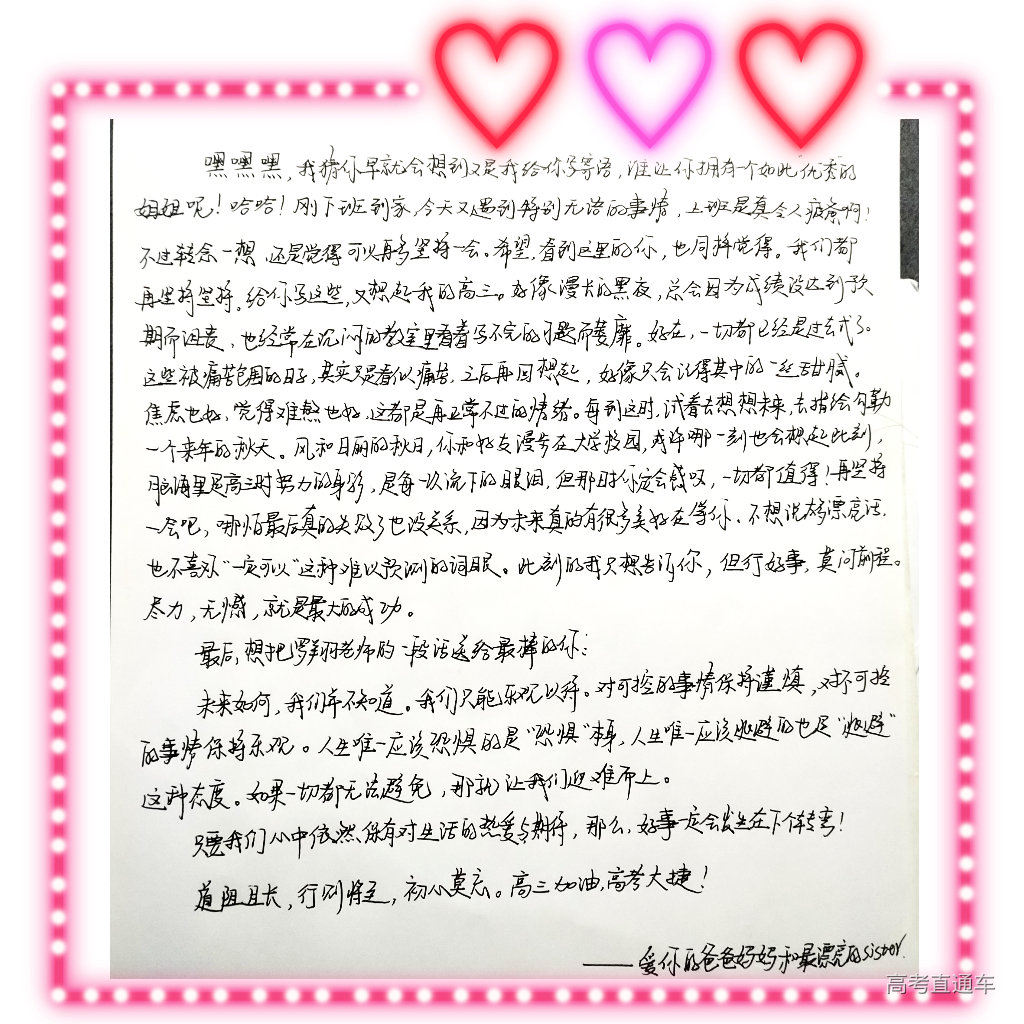 嘿嘿嘿，我猜你早就会想到又是我给你写寄语，谁让你拥有一个如此优秀的
姐姐呢！哈哈！刚下班到家，今天又遇到特别无语的事情，上班是真令人疲惫啊！
不过转念一想，还是觉得可以再多坚持一会。希望，看到这里的你，也同样觉得。我们都
再坚持坚持。给你写这些，又想起我的高三。好像漫长的黑夜，总会因为成绩没达到预
期而沮丧，也经常在沉闷的教室里看着写不完的习题而萎靡。好在，一切都已经是过去式了。
这些被痛苦包围的日子，其实只是看似痛苦，之后再回想起，好像只会记得其中的一丝甜腻。
焦虑也好，觉得难熬也好，这都是再正常不过的情绪。每到这时，试着去想想未来，去描绘勾勒
一个来年的秋天。风和日丽的秋日，你和好友漫步在大学校园，或许哪一刻也会想起此刻，
脑海里是高三时努力的身影，是每一次流下的眼泪，但那时你定会感叹，一切都值得！再坚持
一会吧，哪怕最后真的失败了也没关系，因为未来真的有很多美好在等你。不想说太多漂亮话，
也不喜欢“一定可以”这种难以预测的词眼。此刻的我只想告诉你，但行好事，莫问前程。
尽力，无憾，就是最大的成功。
最后，想把罗翔老师的一段话送给最棒的你：
未来如何，我们并不知道。我们只能乐观以待。对可控的事情保持谨慎，对不可控
的事情保持乐观。人生唯一应该恐惧的是“恐惧”本身，人生唯一应该逃避的也是“逃避”
这种态度。如果一切都无法避免，那就让我们迎难而上。
只要我们心中依然保有对生活的热爱与期待，那么，好事一定会发生在下个转弯！
道阻且长，行则将至，初心莫忘。高三加油，高考大捷！
——爱你的爸爸妈妈和最漂亮的sister
高考直通车